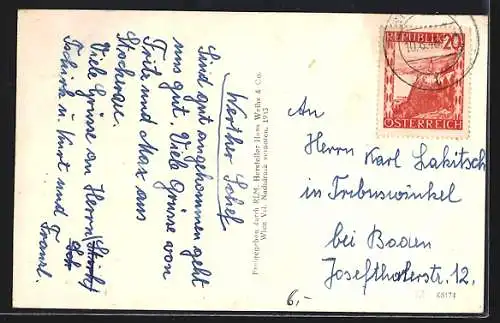 Werther Schef
Sind gut angekommen geht
uns gut. Viele Grüsse von
Fritz und Max aus
Stockerau.
Viele Grüsse an Herrn
u. Kurt und
Franzl.
Freigegeben durch BLM. Hersteller Hans Weihs & Co.
Wien VxI. Nachdruck verboten. 1943
REPUBLIK 20
ÖSTERREICH
An
Herrn Karl Lakitsch
in Tribuswinkel
bei Baden
Josefthalerstr. 12.
6,-
68174